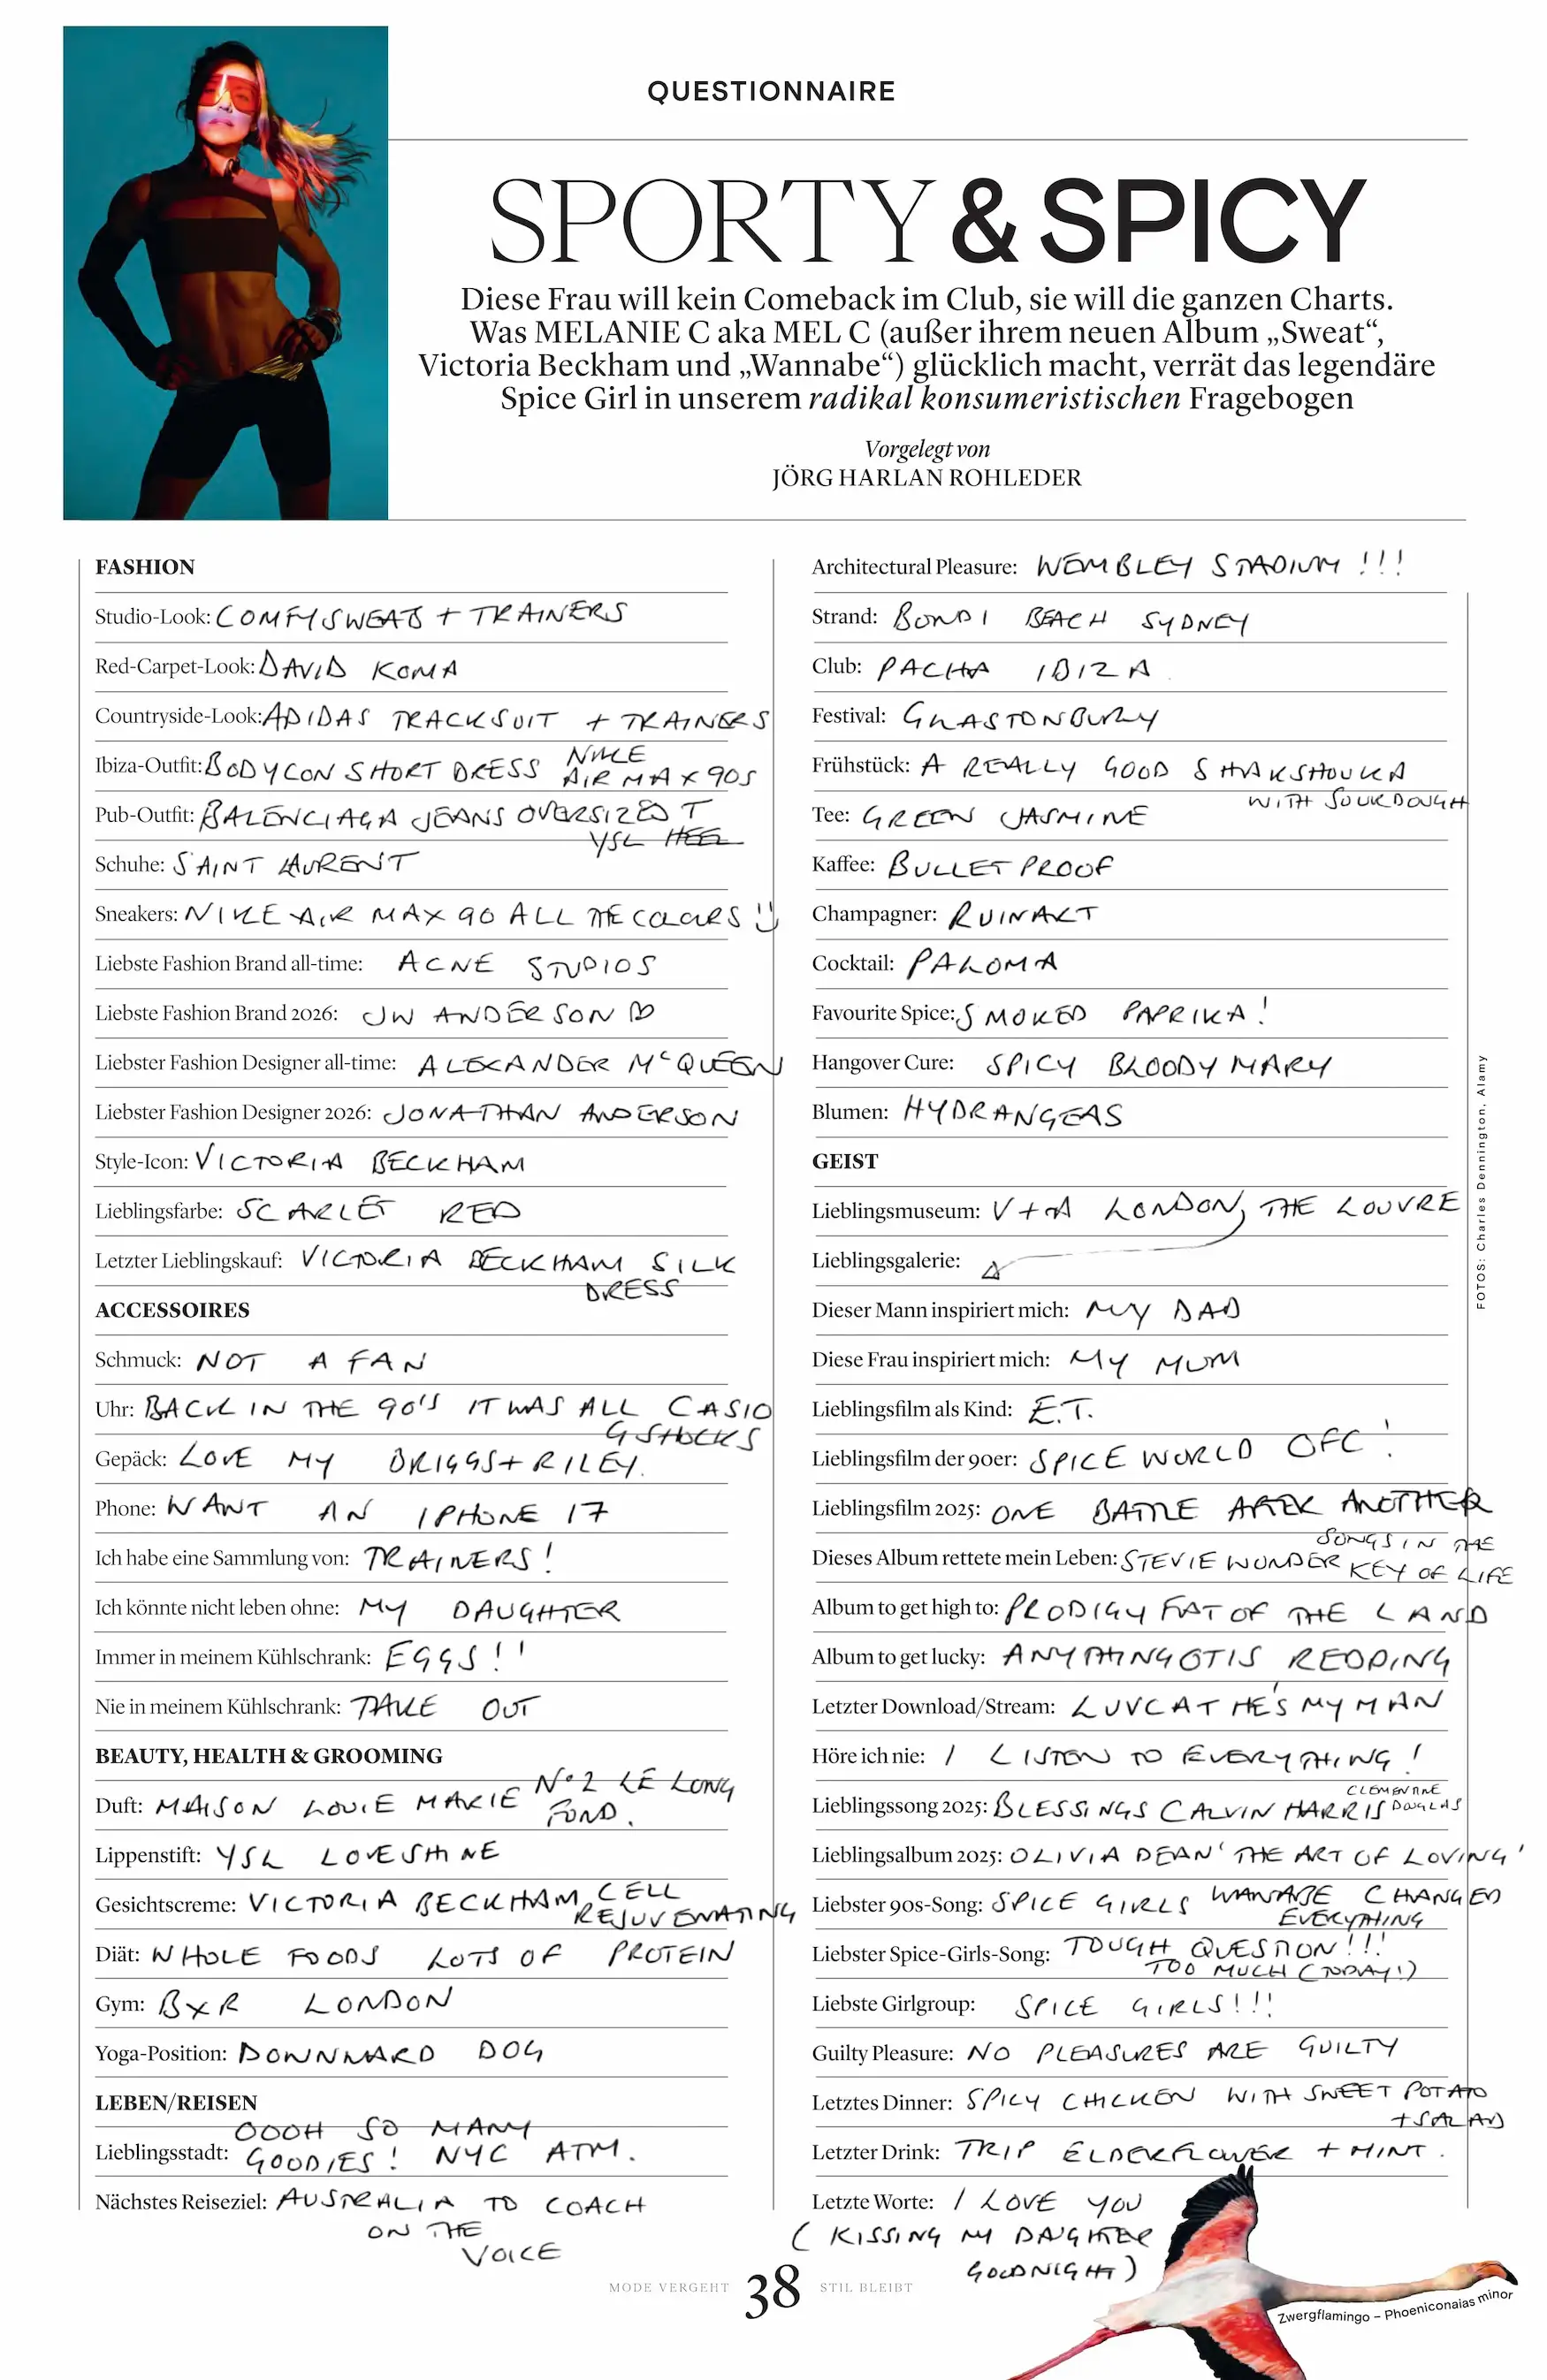 QUESTIONNAIRE
SPORTY & SPICY
Diese Frau will kein Comeback im Club, sie will die ganzen Charts.
Was MELANIE C aka MEL C (außer ihrem neuen Album „Sweat“,
Victoria Beckham und „Wannabe“) glücklich macht, verrät das legendäre
Spice Girl in unserem radikal konsumeristischen Fragebogen
Vorgelegt von
JÖRG HARLAN ROHLEDER
FASHION
Studio-Look: COMFY SWEATS + TRAINERS
Red-Carpet-Look: DAVID KOMA
Countryside-Look: ADIDAS TRACKSUIT + TRAINERS
Ibiza-Outfit: BODYCON SHORT DRESS NIKE
AIR MAX 90S
Pub-Outfit: BALENCIAGA JEANS OVERSIZED T
YSL HEEL
Schuhe: SAINT LAURENT
Sneakers: NIKE AIR MAX 90 ALL THE COLOURS
Liebste Fashion Brand all-time: ACNE STUDIOS
Liebste Fashion Brand 2026: JW ANDERSON ♡
Liebster Fashion Designer all-time: ALEXANDER McQUEEN
Liebster Fashion Designer 2026: JONATHAN ANDERSON
Style-Icon: VICTORIA BECKHAM
Lieblingsfarbe: SCARLET RED
Letzter Lieblingskauf: VICTORIA BECKHAM SILK
DRESS
ACCESSOIRES
Schmuck: NOT A FAN
Uhr: BACK IN THE 90'S IT WAS ALL CASIO
G SHOCKS
Gepäck: LOVE MY BRIGGS + RILEY.
Phone: WANT AN IPHONE 17
Ich habe eine Sammlung von: TRAINERS!
Ich könnte nicht leben ohne: MY DAUGHTER
Immer in meinem Kühlschrank: EGGS!!
Nie in meinem Kühlschrank: TAKE OUT
BEAUTY, HEALTH & GROOMING
Duft: MAISON LOUIE MARIE Nº2 LE LONG
FOND.
Lippenstift: YSL LOVESHINE
Gesichtscreme: VICTORIA BECKHAM, CELL
REJUVENATING
Diät: WHOLE FOODS LOTS OF PROTEIN
Gym: BXR LONDON
Yoga-Position: DOWNWARD DOG
LEBEN/REISEN
OOOH SO MANY
Lieblingsstadt: GOODIES! NYC ATM.
Nächstes Reiseziel: AUSTRALIA TO COACH
ON THE
VOICE
Architectural Pleasure: WEMBLEY STADIUM!!!
Strand: BONDI BEACH SYDNEY
Club: PACHA IBIZA.
Festival: GLASTONBURY
Frühstück: A REALLY GOOD SHAKSHOUKA
WITH SOURDOUGH
Tee: GREEN JASMINE
Kaffee: BULLETPROOF
Champagner: RUINART
Cocktail: PALOMA
Favourite Spice: SMOKED PAPRIKA!
Hangover Cure: SPICY BLOODY MARY
Blumen: HYDRANGEAS
GEIST
Lieblingsmuseum: V+A LONDON, THE LOUVRE
Lieblingsgalerie:
Dieser Mann inspiriert mich: MY DAD
Diese Frau inspiriert mich: MY MUM
Lieblingsfilm als Kind: E.T.
Lieblingsfilm der 90er: SPICE WORLD OFC!
Lieblingsfilm 2025: ONE BATTLE AFTER ANOTHER
Dieses Album rettete mein Leben: STEVIE WONDER SONGS IN THE
KEY OF LIFE
Album to get high to: PRODIGY FAT OF THE LAND
Album to get lucky: ANYTHING OTIS REDDING
Letzter Download/Stream: LUVCAT HE'S MY MAN
Höre ich nie: I LISTEN TO EVERYTHING!
Lieblingssong 2025: BLESSINGS CALVIN HARRIS CLEMENTINE
DOUGLAS
Lieblingsalbum 2025: OLIVIA DEAN 'THE ART OF LOVING'
Liebster 90s-Song: SPICE GIRLS WANNABE CHANGED
EVERYTHING
Liebster Spice-Girls-Song: TOUGH QUESTION!!!
TOO MUCH (TODAY!)
Liebste Girlgroup: SPICE GIRLS!!!
Guilty Pleasure: NO PLEASURES ARE GUILTY
Letztes Dinner: SPICY CHICKEN WITH SWEET POTATO
+ SALAD
Letzter Drink: TRIP ELDERFLOWER + MINT.
Letzte Worte: I LOVE YOU
(KISSING MY DAUGHTER
GOODNIGHT)
FOTOS: Charles Dennington, Alamy
MODE VERGEHT 38 STIL BLEIBT
Zwergflamingo – Phoeniconaias minor